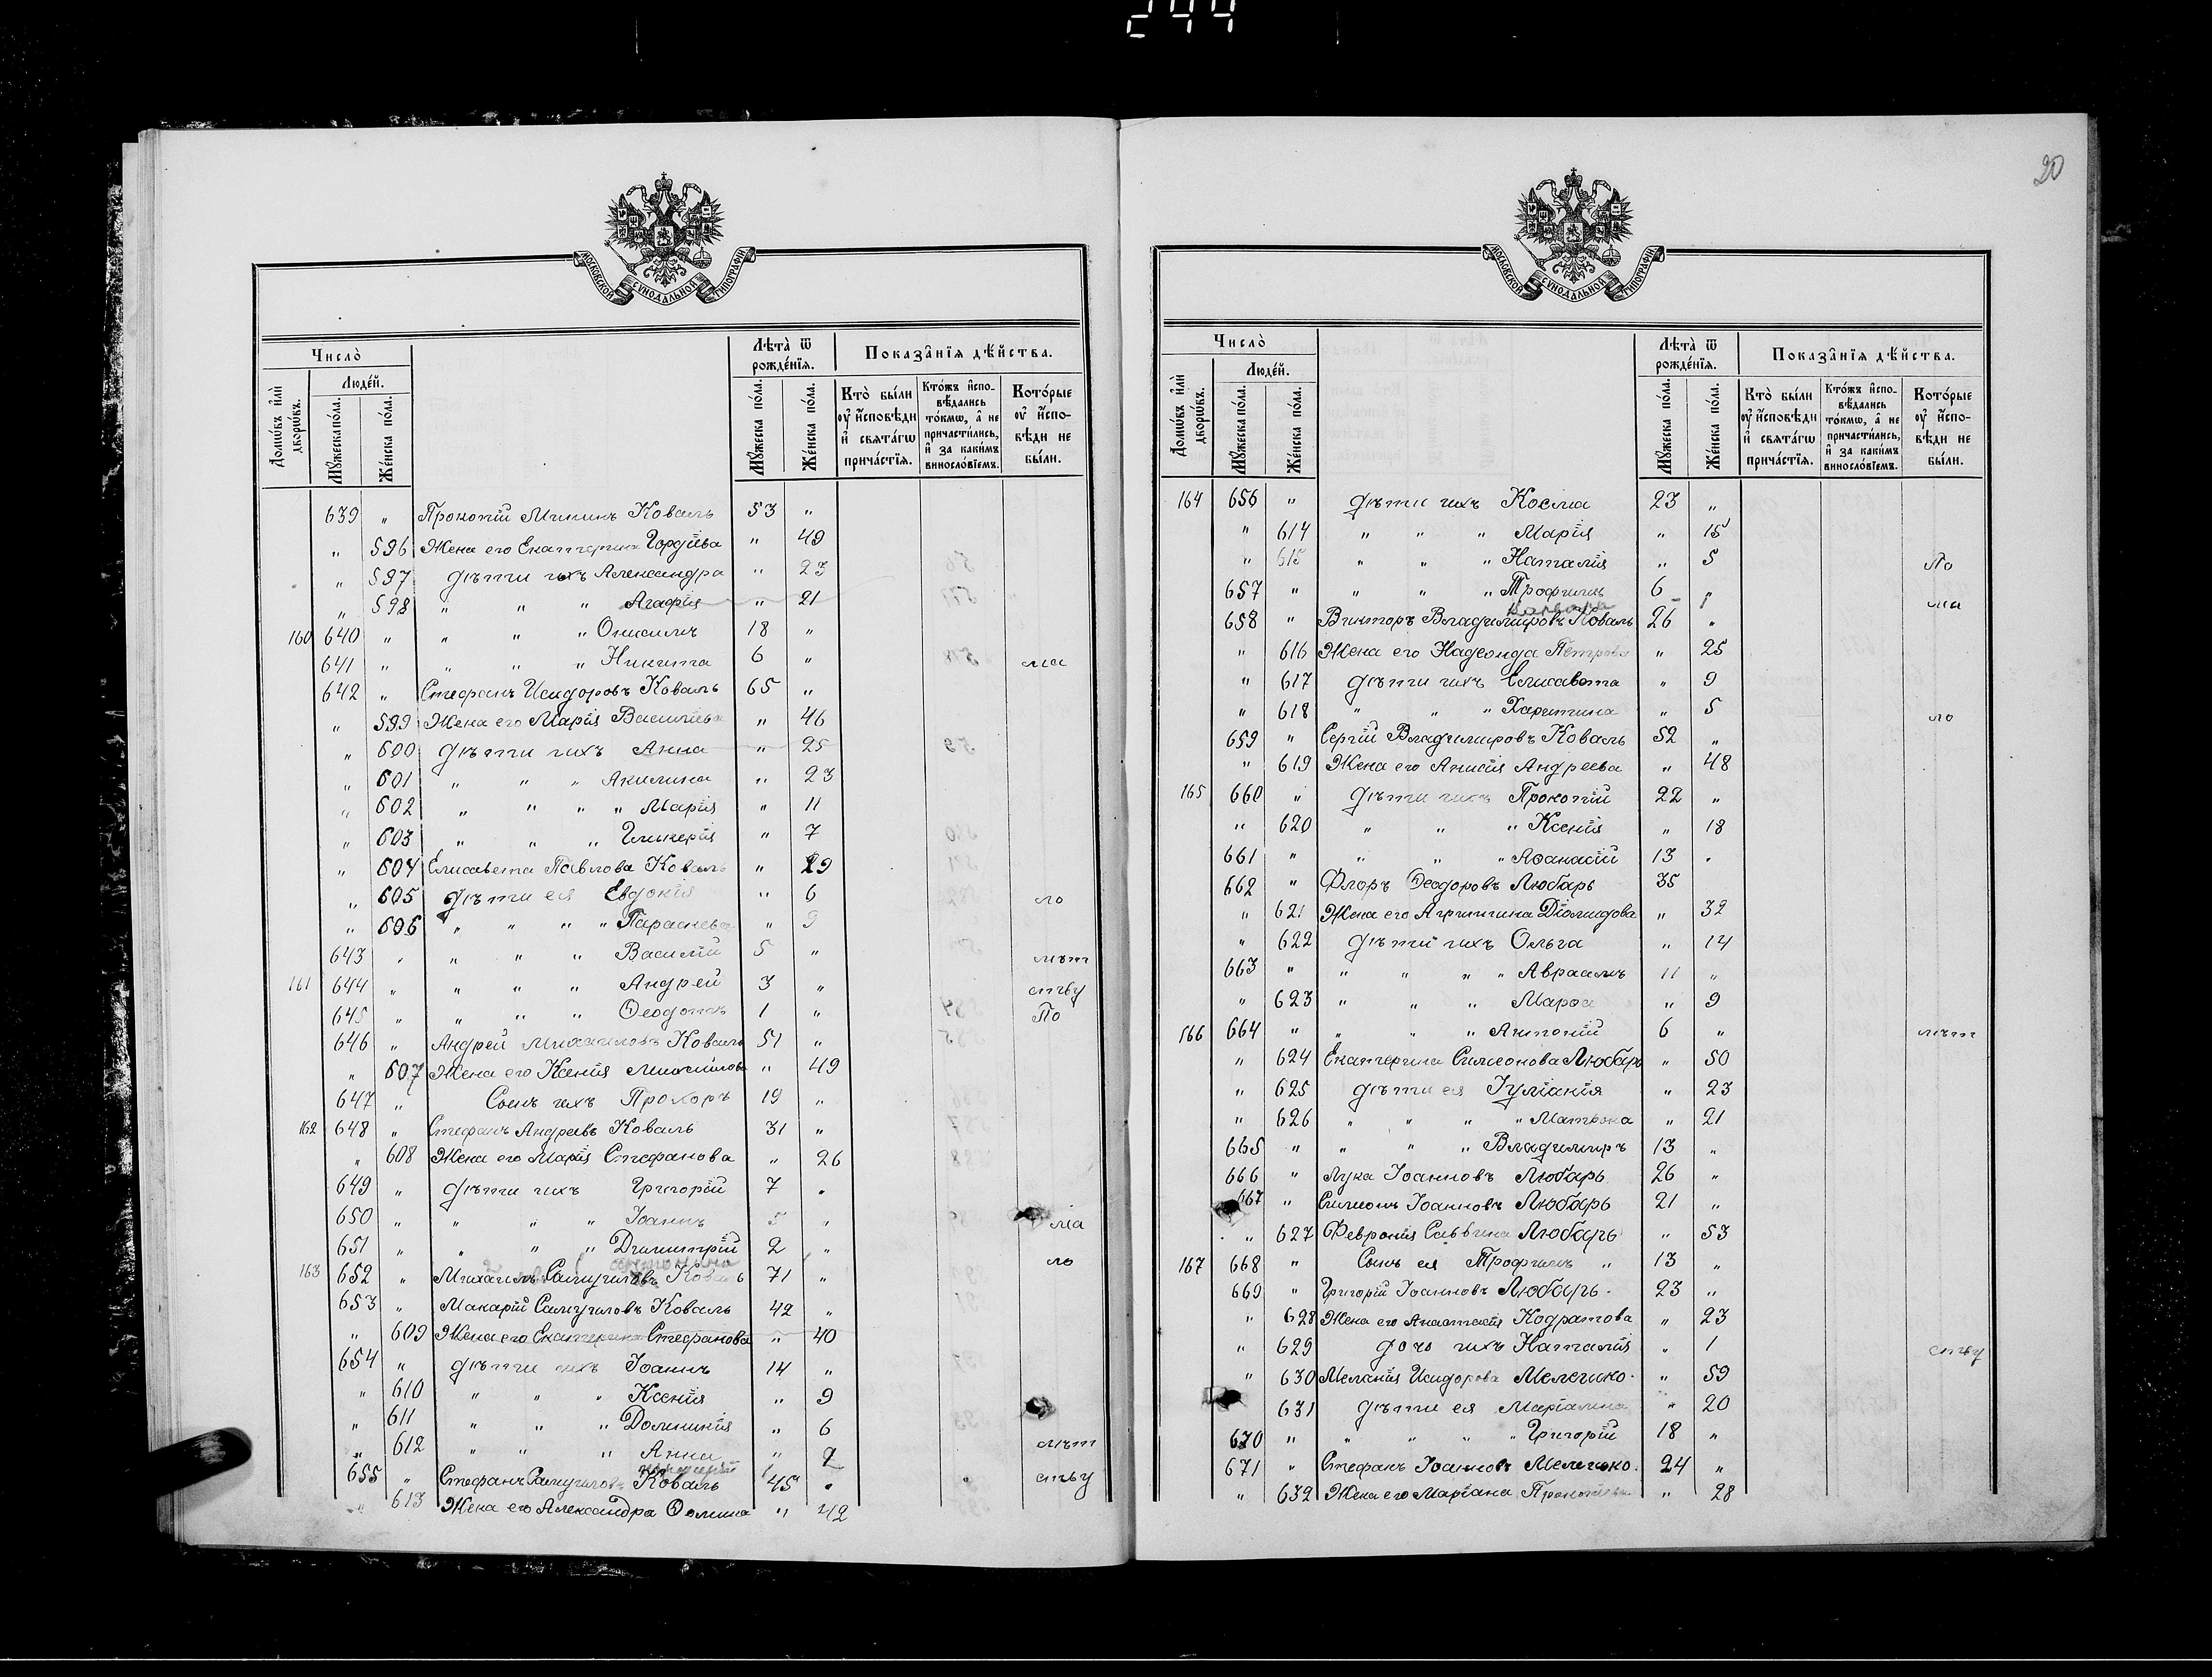 244
20
МОСКОВСКОЙ СѴНОДАЛЬНОЙ ТИПОГРАФІИ
Число̀
Домѡ́въ и҆лѝ дворѡ́въ.
Люде́й.
Мꙋ́жеска по́ла.
Же́нска по́ла.
Лѣ́та ѿ рожде́нїѧ.
Мꙋ́жеска по́ла.
Же́нска по́ла.
Показа̑нїѧ дѣ́йства.
Кто̀ бы́ли ᲂу҆ и҆́сповѣди и҆ свѧта́гѡ прича́стїѧ.
Кто́жъ и҆спо-
вѣ́дались то́кмѡ, а҆ не причасти́лись, и҆ за каки́мъ виносло́вїемъ.
Кото́рые ᲂу҆ и҆́спо-
вѣди не бы́ли.
639 " Прокопій Мининъ Коваль 53 "
" 596 Жена его Екатерина Гордѣева " 49
" 597 дѣти ихъ Александра " 23
" 598 " " " Агафія " 21
160 640 " " " " Онисимъ 18 "
641 " " " " Никита 6 " ма
642 " Стефанъ Исидоровъ Коваль 65 "
" 599 Жена его Марія Васильева " 46
" 600 дѣти ихъ Анна " 25
" 601 " " " Акилина " 23
" 602 " " " " Марія " 11
" 603 " " " Гликерія " 7
" 604 Елисавета Павлова Коваль " 29
" 605 дѣти ея Евдокія " 6 ло
" 606 " " " " Параскева " 9
643 " " " " Василій 5 " лѣт
161 644 " " " " Андрей 3 " ству
645 " " " " Ѳеодотъ 1 " По
646 " Андрей Михаиловъ Коваль 51 "
" 607 Жена его Ксенія Михаилова " 49
647 " Сынъ ихъ Прохоръ 19 "
162 648 " Стефанъ Андреевъ Коваль 31 "
" 608 Жена его Марія Стефанова " 26
649 " дѣти ихъ Григорій 7 "
650 " " " " Іоаннъ 5 " ма
651 " " " " Димитрій 2 " ло
163 652 " Михаилъ Самуиловъ Коваль 71 "
653 " Макарій Самуиловъ Коваль 42 "
" 609 Жена его Екатерина Стефанова " 40
654 " дѣти ихъ Іоаннъ 14 "
" 610 " " " Ксенія " 9
" 611 " " " Домникія " 6
" 612 " " " Анна " 2 лѣт
655 " Стефанъ Самуиловъ Коваль 45 " ству
" 613 Жена его Александра Ѳомина " 42
Число̀
Домѡ́въ и҆лѝ дворѡ́въ.
Люде́й.
Мꙋ́жеска по́ла.
Же́нска по́ла.
Лѣ́та ѿ рожде́нїѧ.
Мꙋ́жеска по́ла.
Же́нска по́ла.
Показа̑нїѧ дѣ́йства.
Кто̀ бы́ли ᲂу҆ и҆́сповѣди и҆ свѧта́гѡ прича́стїѧ.
Кто́жъ и҆спо-
вѣ́дались то́кмѡ, а҆ не причасти́лись, и҆ за каки́мъ виносло́вїемъ.
Кото́рые ᲂу҆ и҆́спо-
вѣди не бы́ли.
МОСКОВСКОЙ СѴНОДАЛЬНОЙ ТИПОГРАФІИ
164 656 " дѣти ихъ Косма 23 "
" 614 " " " Марія " 15
" 615 " " " Наталія " 5 По
657 " " " " Трофимъ 6 " ма
658 " Викторъ Владимировъ Коваль 26 "
" 616 Жена его Надежда Петрова " 25
" 617 дѣти ихъ Елисавета " 9
" 618 " " " Харитина " 5 ло
659 " Сергій Владимировъ Коваль 52 "
" 619 Жена его Анисія Андреева " 48
165 660 " дѣти ихъ Прокопій 22 "
" 620 " " " Ксенія " 18
661 " " " " Аѳанасій 13 "
662 " Флоръ Ѳеодоровъ Любарь 35
" 621 Жена его Агрипина Діомидова " 32
" 622 дѣти ихъ Ольга " 14
663 " " " " " Авраамъ 11 "
" 623 " " " Марѳа " 9
166 664 " " " " Антоній 6 " лѣт
" 624 Екатерина Симеонова Любарь " 50
" 625 дѣти ея Іуліанія " 23
" 626 " " " " Матрона " 21
665 " " " " Владимиръ 13 "
666 " Лука Іоанновъ Любарь 26 "
667 " Симеонъ Іоанновъ Любарь 21 "
" 627 Февронія Саввина Любарь " 53
167 668 " Сынъ ея Трофимъ " 13 "
669 " Григорій Іоанновъ Любарь. 23 "
" 628 Жена его Анастасія Кодратова " 23
" 629 дочь ихъ Наталія " 1 ству
" 630 Меланія Исидорова Мелешко. " 59
631 дѣти ея Маріамна " 20
670 " " " " " Григорій 18 "
671 " Стефанъ Іоанновъ Мелешко. 24 "
" 632 Жена его Маріана Прокопьева " 28